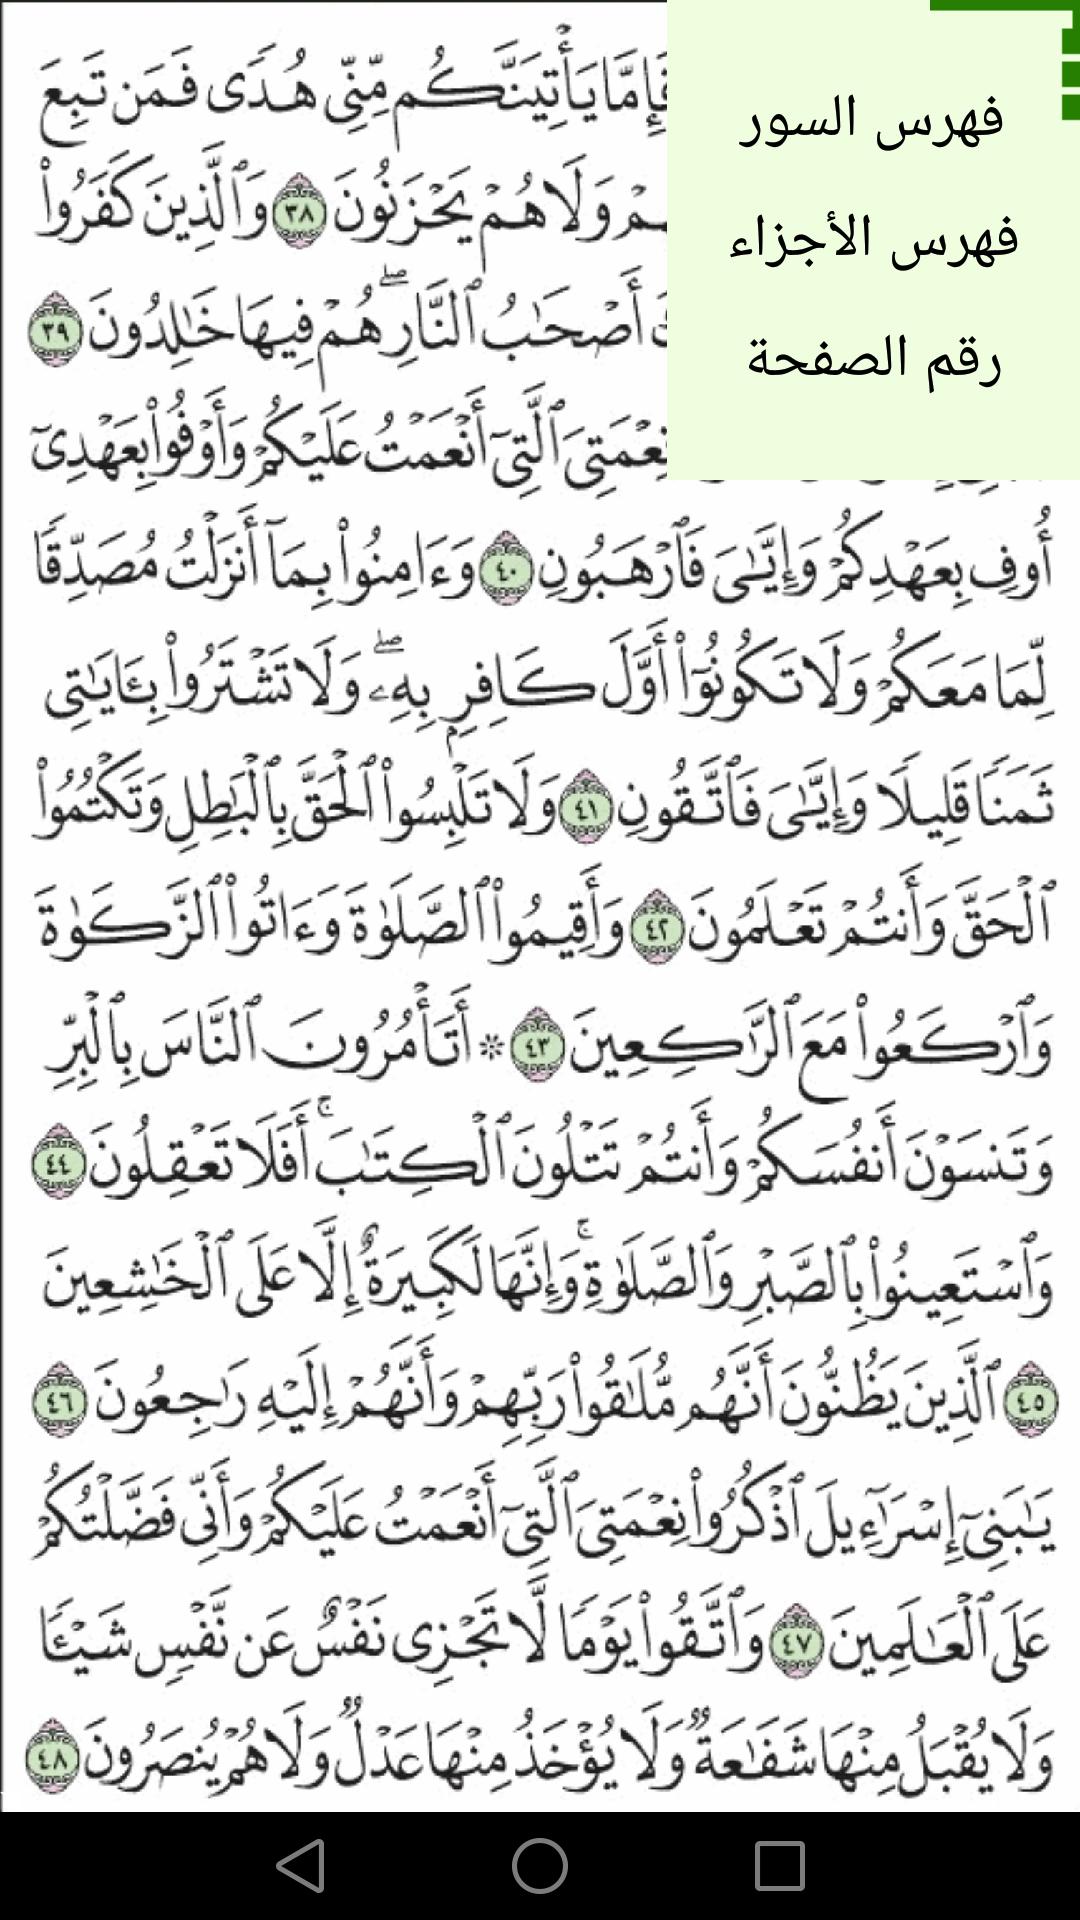 فهرس السور
فهرس الأجزاء
رقم الصفحة
فَإِمَّا يَأْتِيَنَّكُم مِّنِّى هُدًى فَمَن تَبِعَ
وَلَا هُمْ يَحْزَنُونَ ٣٨ وَٱلَّذِينَ كَفَرُوا۟
أَصْحَـٰبُ ٱلنَّارِ ۖ هُمْ فِيهَا خَـٰلِدُونَ ٣٩
نِعْمَتِىَ ٱلَّتِىٓ أَنْعَمْتُ عَلَيْكُمْ وَأَوْفُوا۟ بِعَهْدِىٓ
أُوفِ بِعَهْدِكُمْ وَإِيَّـٰىَ فَٱرْهَبُونِ ٤٠ وَءَامِنُوا۟ بِمَآ أَنزَلْتُ مُصَدِّقًا
لِّمَا مَعَكُمْ وَلَا تَكُونُوٓا۟ أَوَّلَ كَافِرٍۭ بِهِۦ ۖ وَلَا تَشْتَرُوا۟ بِـَٔايَـٰتِى
ثَمَنًا قَلِيلًا وَإِيَّـٰىَ فَٱتَّقُونِ ٤١ وَلَا تَلْبِسُوا۟ ٱلْحَقَّ بِٱلْبَـٰطِلِ وَتَكْتُمُوا۟
ٱلْحَقَّ وَأَنتُمْ تَعْلَمُونَ ٤٢ وَأَقِيمُوا۟ ٱلصَّلَوٰةَ وَءَاتُوا۟ ٱلزَّكَوٰةَ
وَٱرْكَعُوا۟ مَعَ ٱلرَّٰكِعِينَ ٤٣ ۞ أَتَأْمُرُونَ ٱلنَّاسَ بِٱلْبِرِّ
وَتَنسَوْنَ أَنفُسَكُمْ وَأَنتُمْ تَتْلُونَ ٱلْكِتَـٰبَ ۚ أَفَلَا تَعْقِلُونَ ٤٤
وَٱسْتَعِينُوا۟ بِٱلصَّبْرِ وَٱلصَّلَوٰةِ ۚ وَإِنَّهَا لَكَبِيرَةٌ إِلَّا عَلَى ٱلْخَـٰشِعِينَ
٤٥ ٱلَّذِينَ يَظُنُّونَ أَنَّهُم مُّلَـٰقُوا۟ رَبِّهِمْ وَأَنَّهُمْ إِلَيْهِ رَٰجِعُونَ ٤٦
يَـٰبَنِىٓ إِسْرَٰٓءِيلَ ٱذْكُرُوا۟ نِعْمَتِىَ ٱلَّتِىٓ أَنْعَمْتُ عَلَيْكُمْ وَأَنِّى فَضَّلْتُكُمْ
عَلَى ٱلْعَـٰلَمِينَ ٤٧ وَٱتَّقُوا۟ يَوْمًا لَّا تَجْزِى نَفْسٌ عَن نَّفْسٍ شَيْـًٔا
وَلَا يُقْبَلُ مِنْهَا شَفَـٰعَةٌ وَلَا يُؤْخَذُ مِنْهَا عَدْلٌ وَلَا هُمْ يُنصَرُونَ ٤٨